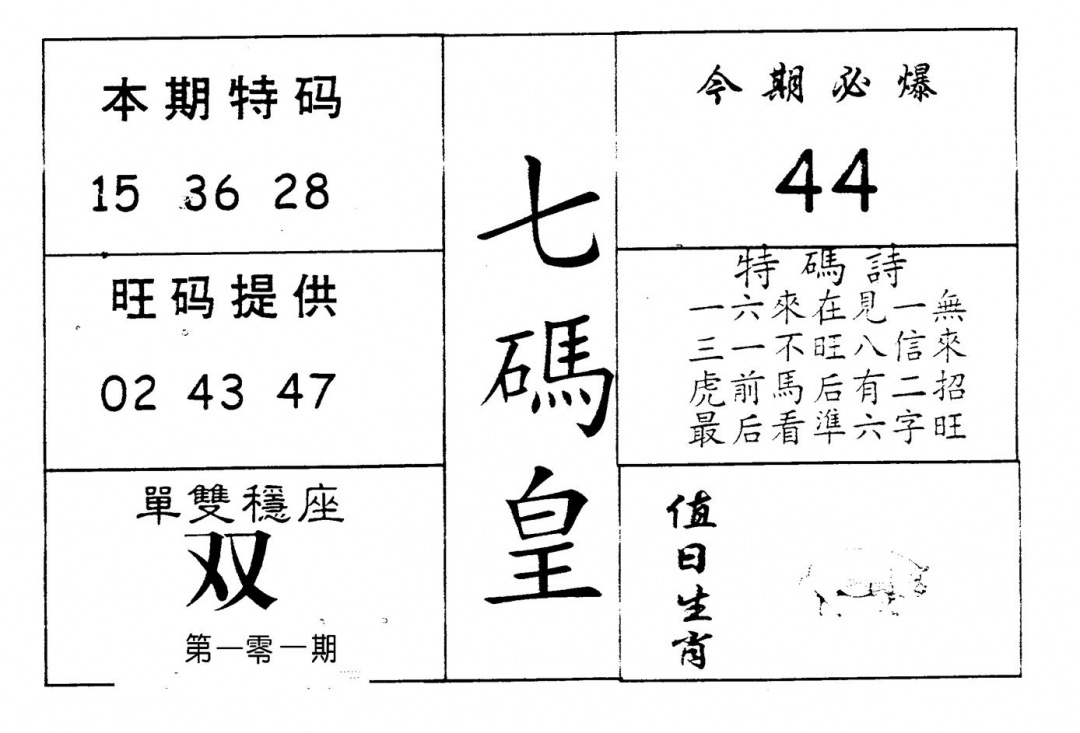 本期特码
15 36 28
旺码提供
02 43 47
單雙穩座
双
第一零一期
七碼皇
今期必爆
44
特碼詩
一六來在見一無
三一不旺八信來
虎前馬后有二招
最后看準六字旺
值日生肖